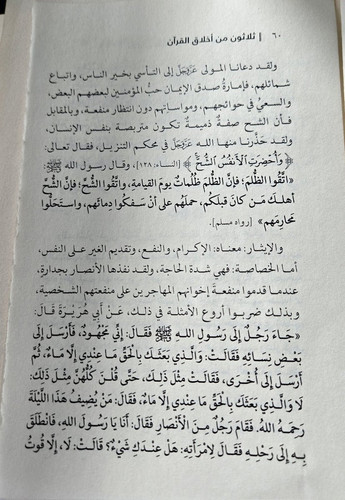 ٦٠ | ثلاثون من أخلاق القرآن
ولقد دعانا المولى عَزَّوَجَلَّ إلى التأسي بخير الناس، واتباع
شمائلهم، فإمارةُ صدق الإيمان حبُّ المؤمنين لبعضهم البعض،
والسعيُ في حوائجهم، ومواساتهم دون انتظار منفعة، وبالمقابل
فكأن الشح صفةٌ ذميمةٌ تكون متربصة بنفس الإنسان،
ولقد حذَّرنا منها الله عَزَّوَجَلَّ في محكم التنزيل، فقال تعالى:
﴿وَأُحْضِرَتِ ٱلْأَنفُسُ ٱلشُّحَّ﴾ [النساء: ١٢٨]، وقال رسول الله ﷺ:
«اتَّقُوا الظُّلمَ؛ فإنَّ الظُّلمَ ظُلُماتٌ يومَ القيامةِ، واتَّقُوا الشُّحَّ؛ فإنَّ الشُّحَّ
أهلكَ مَن كانَ قبلَكُم، حملَهُم على أنْ سَفكُوا دِمائَهم، واستَحلُّوا
محارِمَهم» [رواه مسلم].
والإيثار: معناه: الإكرام، والنفع، وتقديم الغير على النفس،
أما الخصاصة: فهي شدة الحاجة، ولقد نفذها الأنصار بجدارة،
عندما قدموا منفعةَ إخوانهم المهاجرين على منفعتهم الشخصية،
وبذلك ضربوا أروع الأمثلة في ذلك، عَنْ أَبِي هُرَيْرَةَ قَالَ:
«جَاءَ رَجُلٌ إِلَى رَسُولِ اللهِ ﷺ فَقَالَ: إِنِّي مَجْهُودٌ، فَأَرْسَلَ إِلَى
بَعْضِ نِسَائِهِ فَقَالَتْ: وَالَّذِي بَعَثَكَ بِالْحَقِّ مَا عِنْدِي إِلَّا مَاءٌ، ثُمَّ
أَرْسَلَ إِلَى أُخْرَى، فَقَالَتْ مِثْلَ ذَلِكَ، حَتَّى قُلْنَ كُلُّهُنَّ مِثْلَ ذَلِكَ:
لَا وَالَّذِي بَعَثَكَ بِالْحَقِّ مَا عِنْدِي إِلَّا مَاءٌ، فَقَالَ: مَنْ يُضِيفُ هَذَا اللَّيْلَةَ
رَحِمَهُ اللهُ، فَقَامَ رَجُلٌ مِنَ الْأَنْصَارِ فَقَالَ: أَنَا يَا رَسُولَ اللهِ، فَانْطَلَقَ
بِهِ إِلَى رَحْلِهِ فَقَالَ لِامْرَأَتِهِ: هَلْ عِنْدَكِ شَيْءٌ؟ قَالَتْ: لَا، إِلَّا قُوتُ